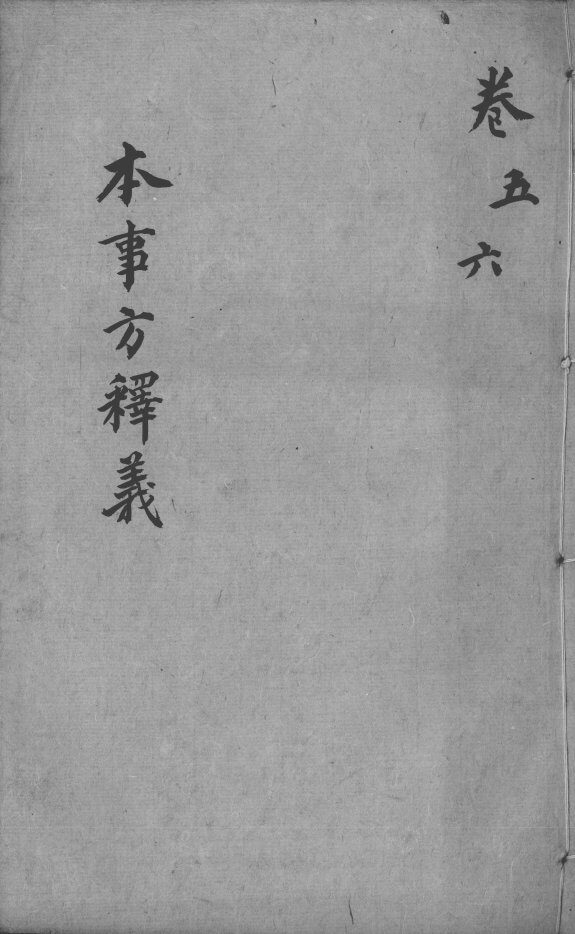 卷五六
本事方釋義